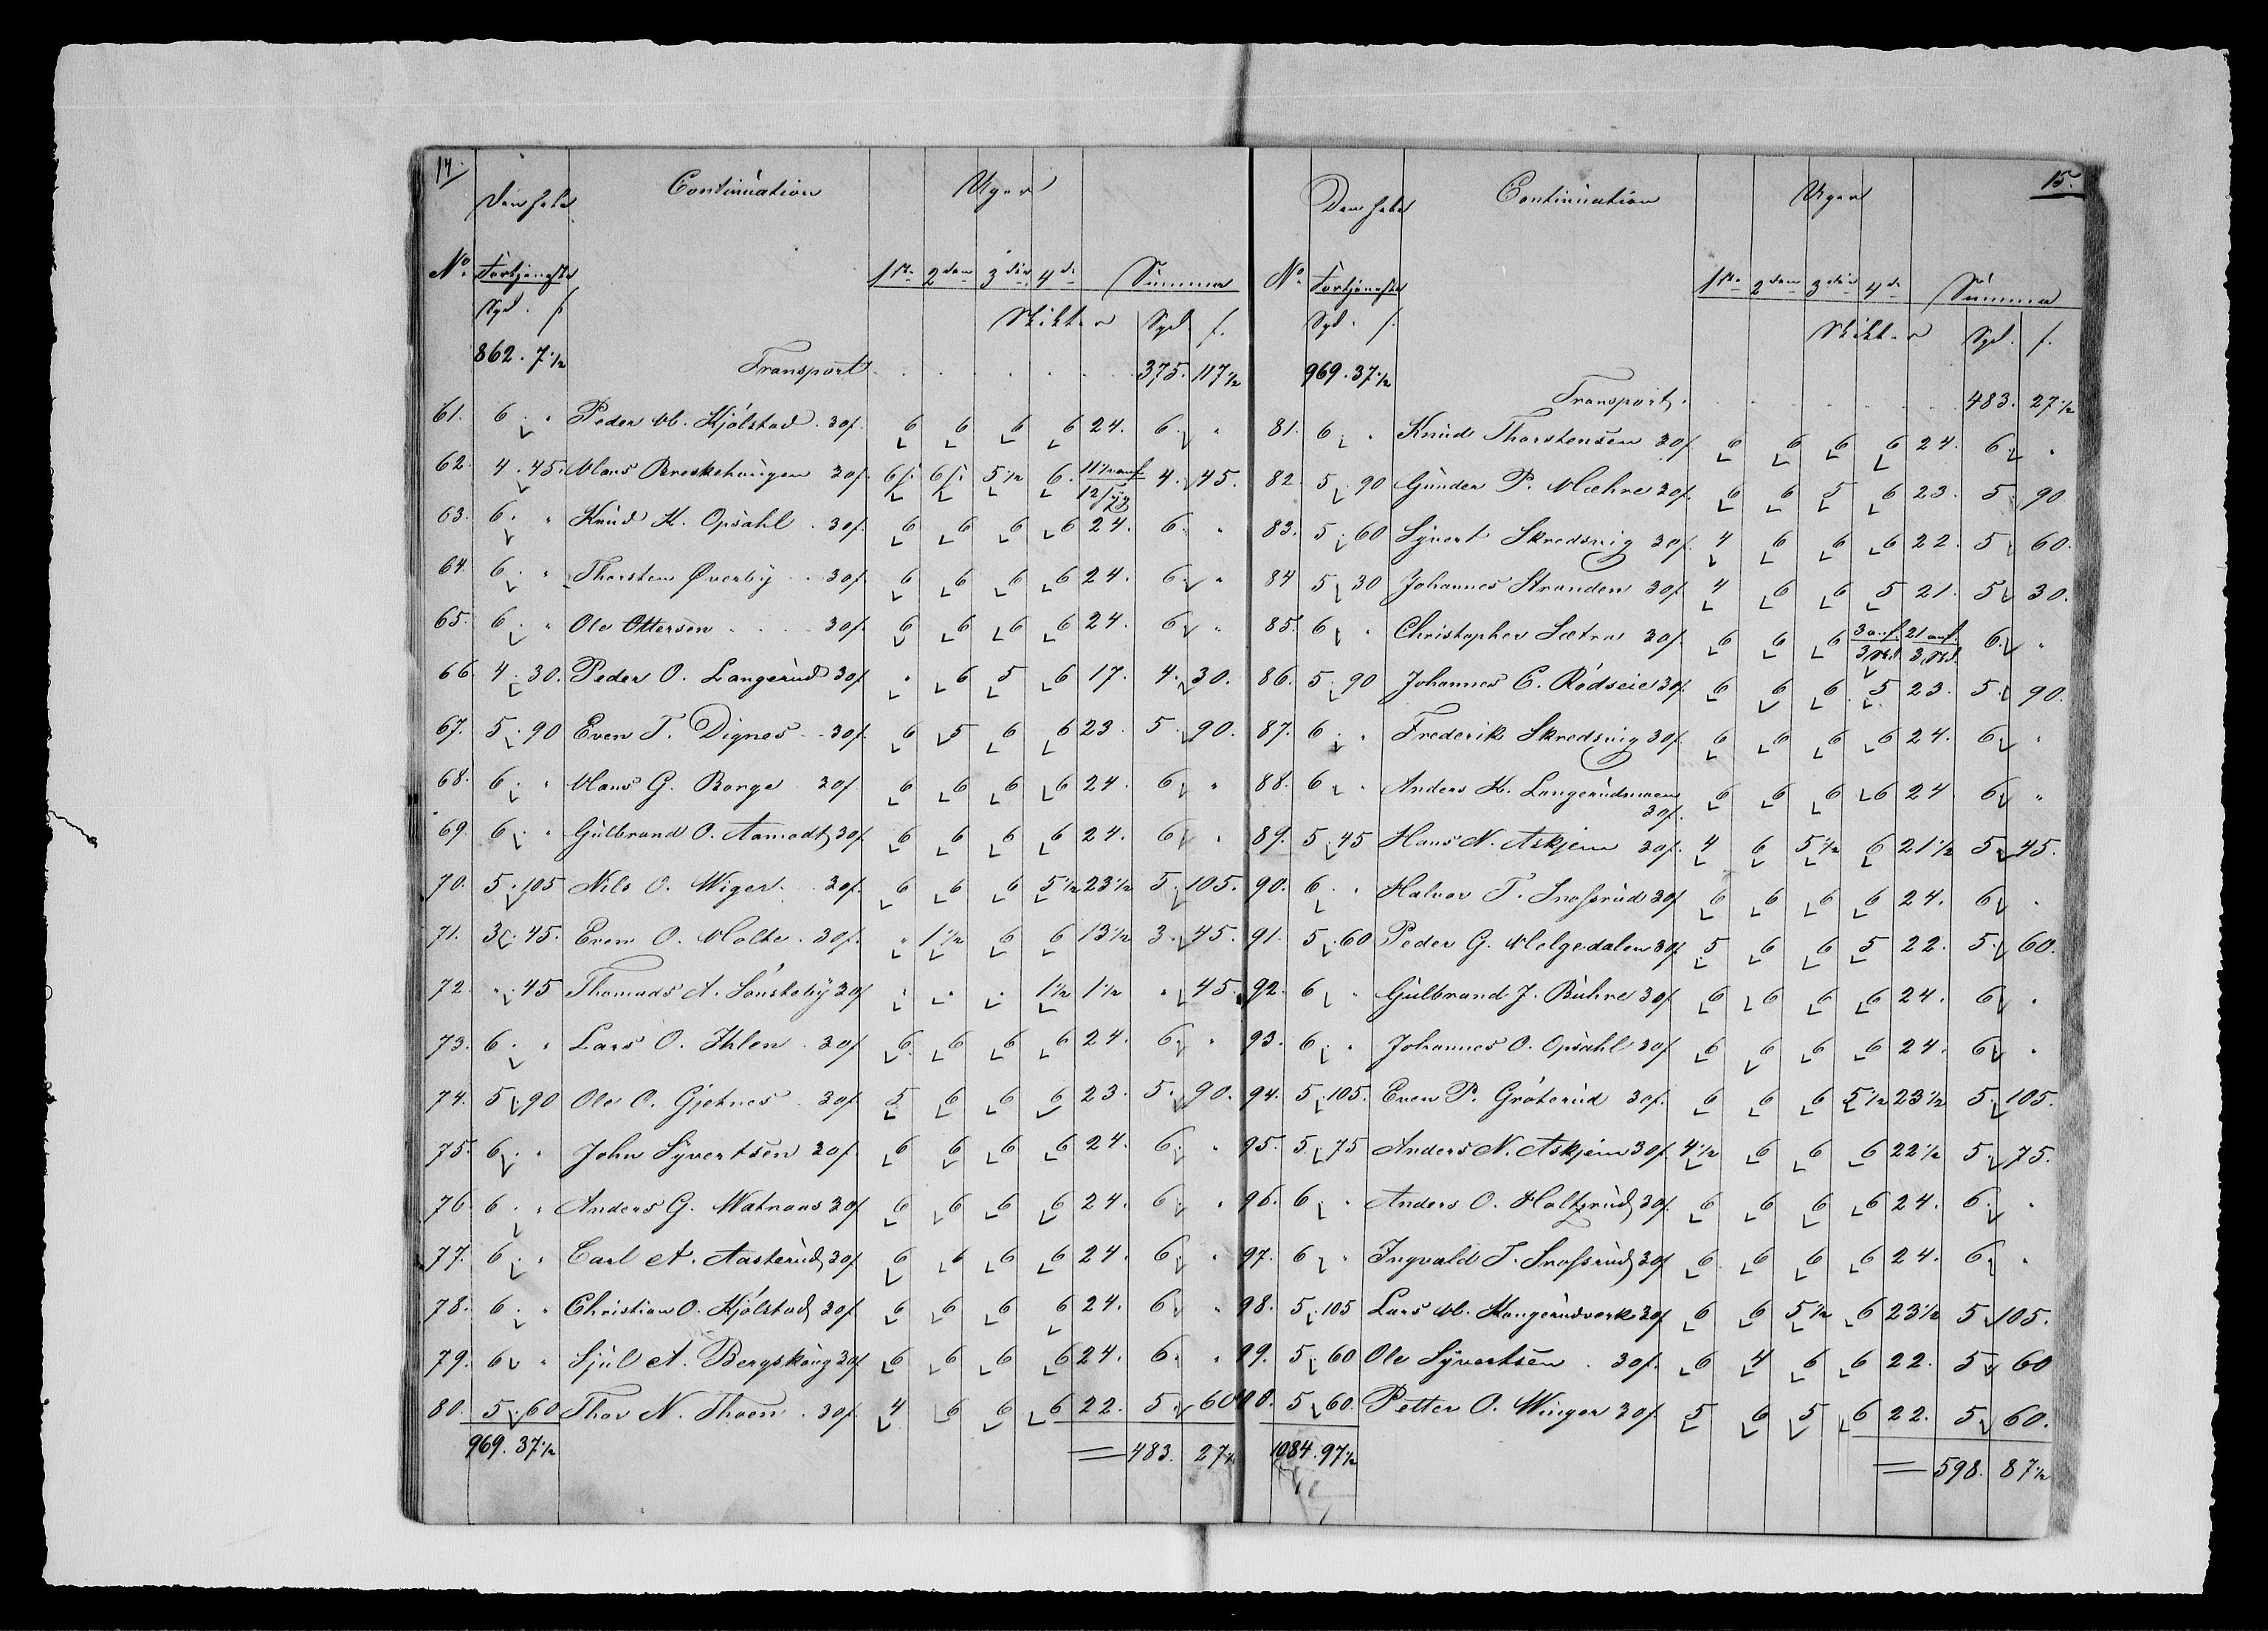 14.
Den hele Continuation Uger
No. Fortjeneste 1ste 2den 3die 4de Summa
Spd. ſ. Skikter Spd. ſ.
862. 7 1/2 Transport . . . . . . 375. 117 1/2
61. 6. " Peder M. Kjölstad. 30ſ. 6 6 6 6 24. 6. "
62. 4. 45. Mons Breskehaugen 30ſ. 5 1/2 6. 4. 45.
63. 6. " Knud K. Opsahl. 30ſ. 6 6 6 6 24. 6. "
64. 6. " Thorsten Øverby . . 30ſ. 6 6 6 6 24. 6. "
65. 6. " Ole Ottersen . . . . 30ſ. 6 6 6 6 24. 6. "
66. 4. 30. Peder O. Langerud 30ſ. " 6 5 6 17. 4. 30.
67. 5. 90 Even T. Dignes . . 30ſ. 6 5 6 6 23 5. 90.
68. 6. " Mons G. Borge . 30ſ. 6 6 6 6 24. 6. "
69. 6. " Gulbrand O. Aamodt 30ſ. 6 6 6 6 24. 6. "
70. 5. 105 Nils O. Wiger . . 30ſ. 6 6 6 5 1/2 23 1/2 5. 105.
71. 3. 45. Even O. Molte. 30ſ. " 1 1/2 6 6 13 1/2 3. 45.
72. ". 45 Thomas A. Sönsteby 30ſ. . . . 1 1/2 1 1/2 " 45.
73. 6. " Lars O. Ihlen. 30ſ. 6 6 6 6 24. 6. "
74. 5. 90 Ole O. Gjetnes. 30ſ. 5 6 6 6 23. 5. 90.
75. 6. " John Syvertsen 30ſ. 6 6 6 6 24. 6. "
76. 6. " Anders G. Watnaas 30ſ. 6 6 6 6 24. 6. "
77. 6. " Carl A. Aasterud 30ſ. 6 6 6 6 24. 6. "
78. 6. " Christian O. Kjölstad 30ſ. 6 6 6 6 24. 6. "
79. 6. " Sjul A. Bergskaug 30ſ. 6 6 6 6 24. 6. "
80. 5. 60 Thor N. Thoen. 30ſ. 4 6 6 6 22. 5. 60
969. 37 1/2 = 483. 27 1/2
15.
Den hele Continuation Uger
No. Fortjeneste 1ste 2den 3die 4de Summa
Spd. ſ. Skikter Spd. ſ.
969. 37 1/2
Transport . . . . . . 483. 27 1/2
81. 6. " Knud Thorstensen 30ſ. 6 6 6 6 24. 6. "
82. 5. 90 Gunder P. Mæhre 30ſ. 6 6 5 6 23. 5. 90.
83. 5. 60 Syvert Skredsvig 30ſ. 4 6 6 6 22. 5. 60.
84 5. 30 Johannes Stranden 30ſ. 4 6 6 5 21. 5. 30.
85. 6. " Christopher Sætra 30ſ. 6 6 6 6. "
86. 5. 90 Johannes C. Rödseie 30ſ. 6 6 6 5 23. 5. 90.
87. 6. " Frederik Skredsvig 30ſ. 6 6 6 6 24. 6. "
88. 6. " Anders K. Langerudmoen 30ſ. 6 6 6 6 24. 6. "
89. 5. 45 Hans N. Askjem 30ſ. 4 6 5 1/2 6 21 1/2 5. 45.
90. 6. " Halvor T. Snoſsrud 30ſ. 6 6 6 6 24. 6. "
91. 5. 60 Peder G. Melgedalen 30ſ. 5 6 6 5 22. 5. 60.
92. 6. " Gulbrand J. Buhre 30ſ. 6 6 6 6 24. 6. "
93. 6. " Johannes O. Opsahl 30ſ. 6 6 6 6 24. 6. "
94. 5. 105. Even P. Gröterud 30ſ. 6 6 6 5 1/2 23 1/2 5. 105.
95. 5. 75 Anders N. Askjem 30ſ. 4 1/2 6 6 6 22 1/2 5. 75.
96. 6. " Anders O. Holtsrud 30ſ. 6 6 6 6 24. 6. "
97. 6. " Ingvald T. Snoſsrud 30ſ. 6 6 6 6 24. 6. "
98. 5. 105 Lars M. 30ſ. 6 6 5 1/2 6 23 1/2 5. 105.
99. 5. 60 Ole Syvertsen. 30ſ. 6 4 6 6 22. 5. 60
100. 5. 60. Petter O. Winger 30ſ. 5 6 5 6 22. 5. 60.
1084. 97 1/2 = 598. 87 1/2